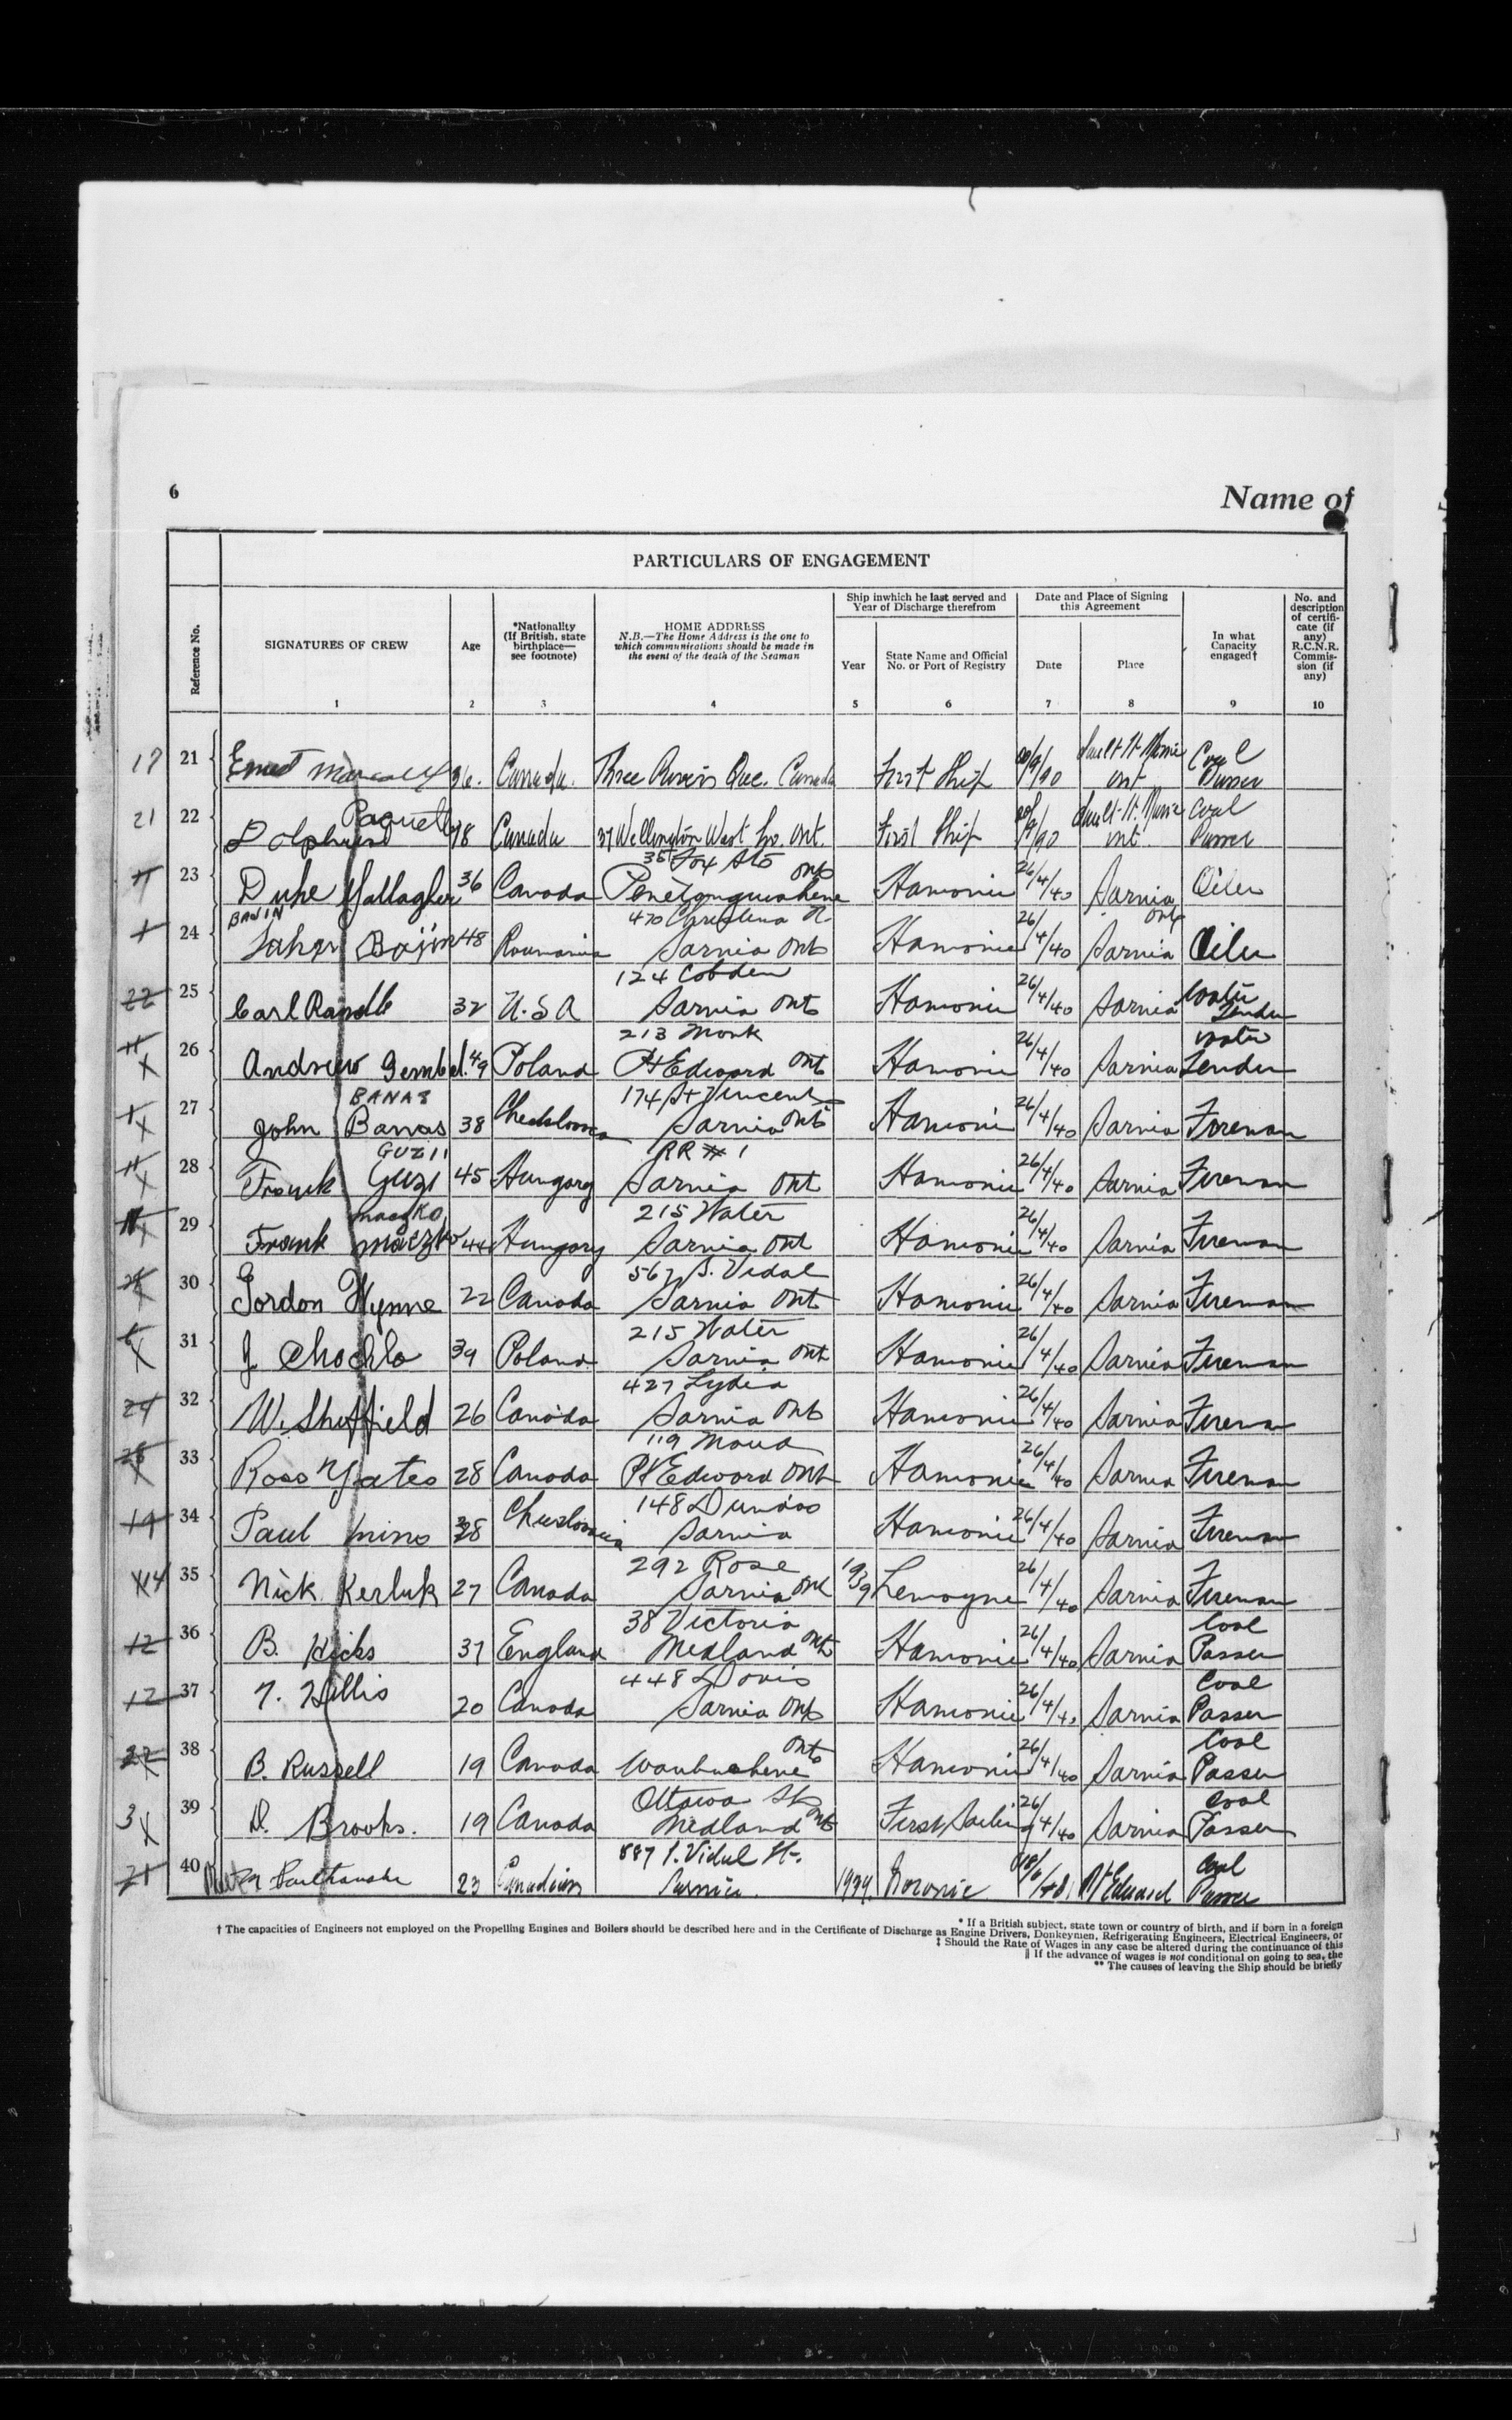 6
Name of
PARTICULARS OF ENGAGEMENT
Reference No.
SIGNATURES OF CREW
Age
*Nationality
(If British, state
birthplace—
see footnote)
HOME ADDRESS
N.B.—The Home Address is the one to
which communications should be made in
the event of the death of the Seaman
Ship in which he last served and
Year of Discharge therefrom
Year
State Name and Official
No. or Port of Registry
Date and Place of Signing
this Agreement
Date
Place
In what
Capacity
engaged†
No. and
description
of certifi-
cate (if
any)
R.C.N.R.
Commis-
sion (if
any)
1 2 3 4 5 6 7 8 9 10
17 21 Ernest 36. Canada. Three Rivers Que. Canada First Ship Sault St Marie Ont Coal Passer
21 22 Paquette 18 Canada 37 Wellington West Ont. First Ship Sault St. Marie Ont. Coal Passer
23 Duke Gallagher 36 Canada 35 Fox Sts Penetanguishene Ont Hamonic 26/4/40 Sarnia Ont Oiler
24 BAJIN Bajin 48 Roumania 470 Christina N. Sarnia Ont Hamonic 26/4/40 Sarnia Oiler
22 25 Carl Randle 32 U.S.A 124 Cobden Sarnia Ont Hamonic 26/4/40 Sarnia Water Tender
26 Andrew Gembel. 49 Poland 213 Monk Pt Edward Ont Hamonic 26/4/40 Sarnia Water Tender
27 BANAS John Banas 38 174 St Vincent Sarnia Ont Hamonic 26/4/40 Sarnia Fireman
28 GUZII Frank Guzi 45 Hungary RR # 1 Sarnia Ont Hamonic 26/4/40 Sarnia Fireman
29 Maczko Frank Maczko 44 Hungary 215 Water Sarnia Ont Hamonic 26/4/40 Sarnia Fireman
30 Gordon Wynne 22 Canada 567 S. Vidal Sarnia Ont Hamonic 26/4/40 Sarnia Fireman
31 J Chochla 39 Poland 215 Water Sarnia Ont Hamonic 26/4/40 Sarnia Fireman
24 32 W. Sheffield 26 Canada 427 Lydia Sarnia Ont Hamonic 26/4/40 Sarnia Fireman
33 Ross Yates 28 Canada 119 Maud Pt Edward Ont Hamonic 26/4/40 Sarnia Fireman
19 34 Paul Mino 38 148 Dundas Sarnia Hamonic 26/4/40 Sarnia Fireman
35 Nick Kerluk 27 Canada 292 Rose Sarnia Ont 1939 Lemoyne 26/4/40 Sarnia Fireman
12 36 B. Hicks 37 England 38 Victoria Midland Ont Hamonic 26/4/40 Sarnia Coal Passer
12 37 T. Hillis 20 Canada 448 Davis Sarnia Ont Hamonic 26/4/40 Sarnia Coal Passer
38 B. Russell 19 Canada Waubaushene Ont Hamonic 26/4/40 Sarnia Coal Passer
3 X 39 D. Brooks. 19 Canada Ottawa St Midland Ont First Sailing 26/4/40 Sarnia Coal Passer
21 40 23 Canadian 887 S. Vidal St. Sarnia. 1939. Noronic Pt Edward Coal Passer
* If a British subject, state town or country of birth, and if born in a foreign
† The capacities of Engineers not employed on the Propelling Engines and Boilers should be described here and in the Certificate of Discharge as Engine Drivers, Donkeymen, Refrigerating Engineers, Electrical Engineers, or
‡ Should the Rate of Wages in any case be altered during the continuance of this
|| If the advance of wages is not conditional on going to sea, the
** The causes of leaving the Ship should be briefly